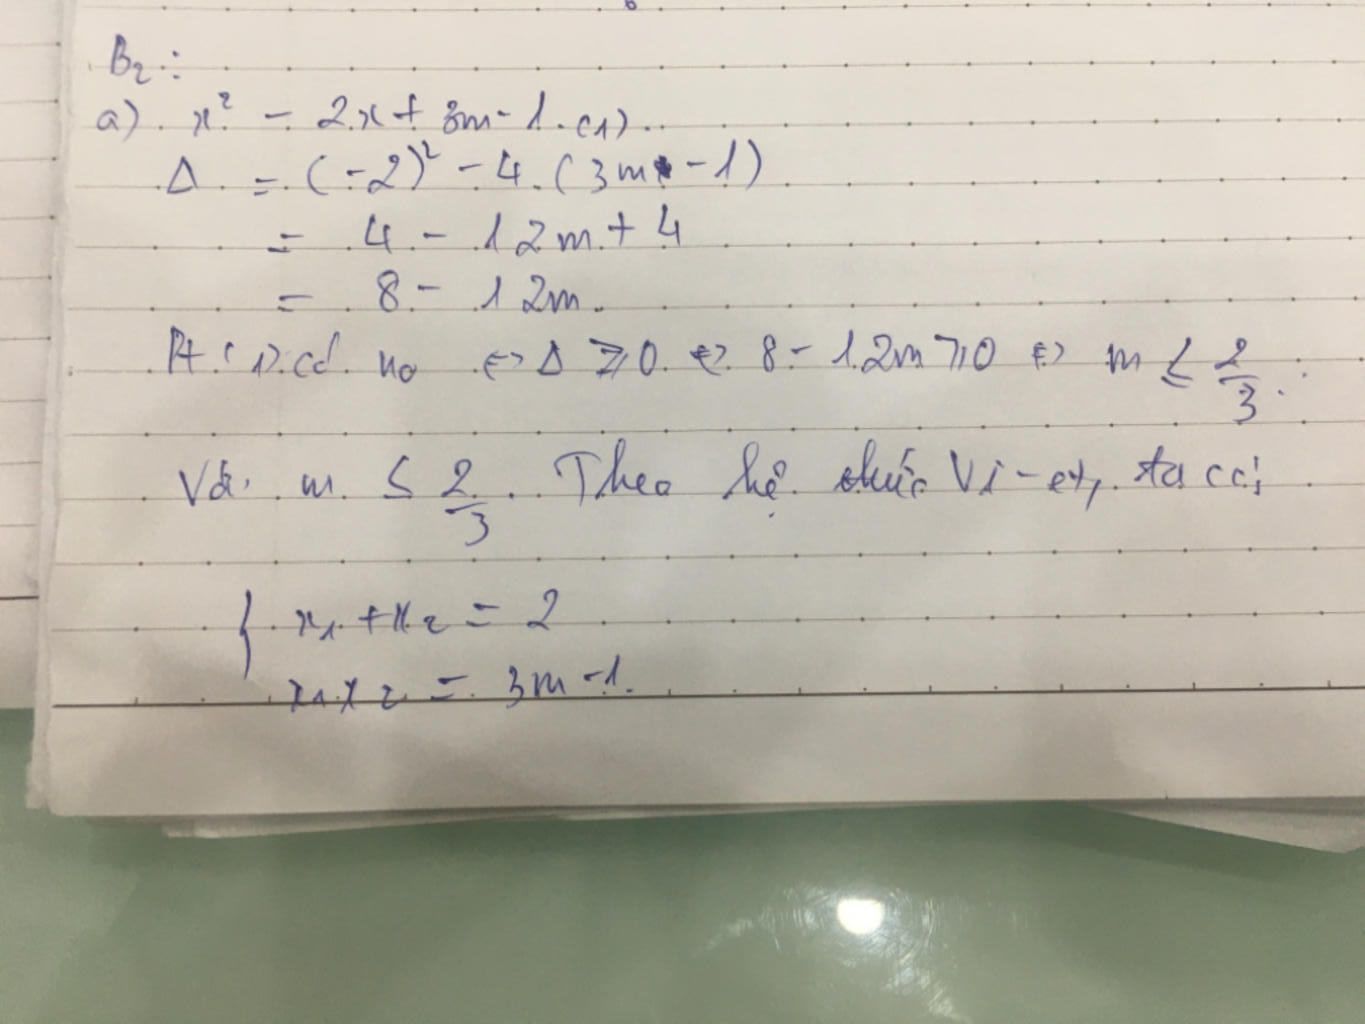 B2:
a) x² - 2x + 3m - 1 (1)
Δ = (-2)² - 4.(3m - 1)
= 4 - 12m + 4
= 8 - 12m.
Pt (1) có no <=> Δ ⩾ 0 <=> 8 - 12m ⩾ 0 <=> m ≤ 2/3.
Với m ≤ 2/3. Theo hệ thức Vi-et, ta có;
{ x1 + x2 = 2
x1 x2 = 3m - 1.